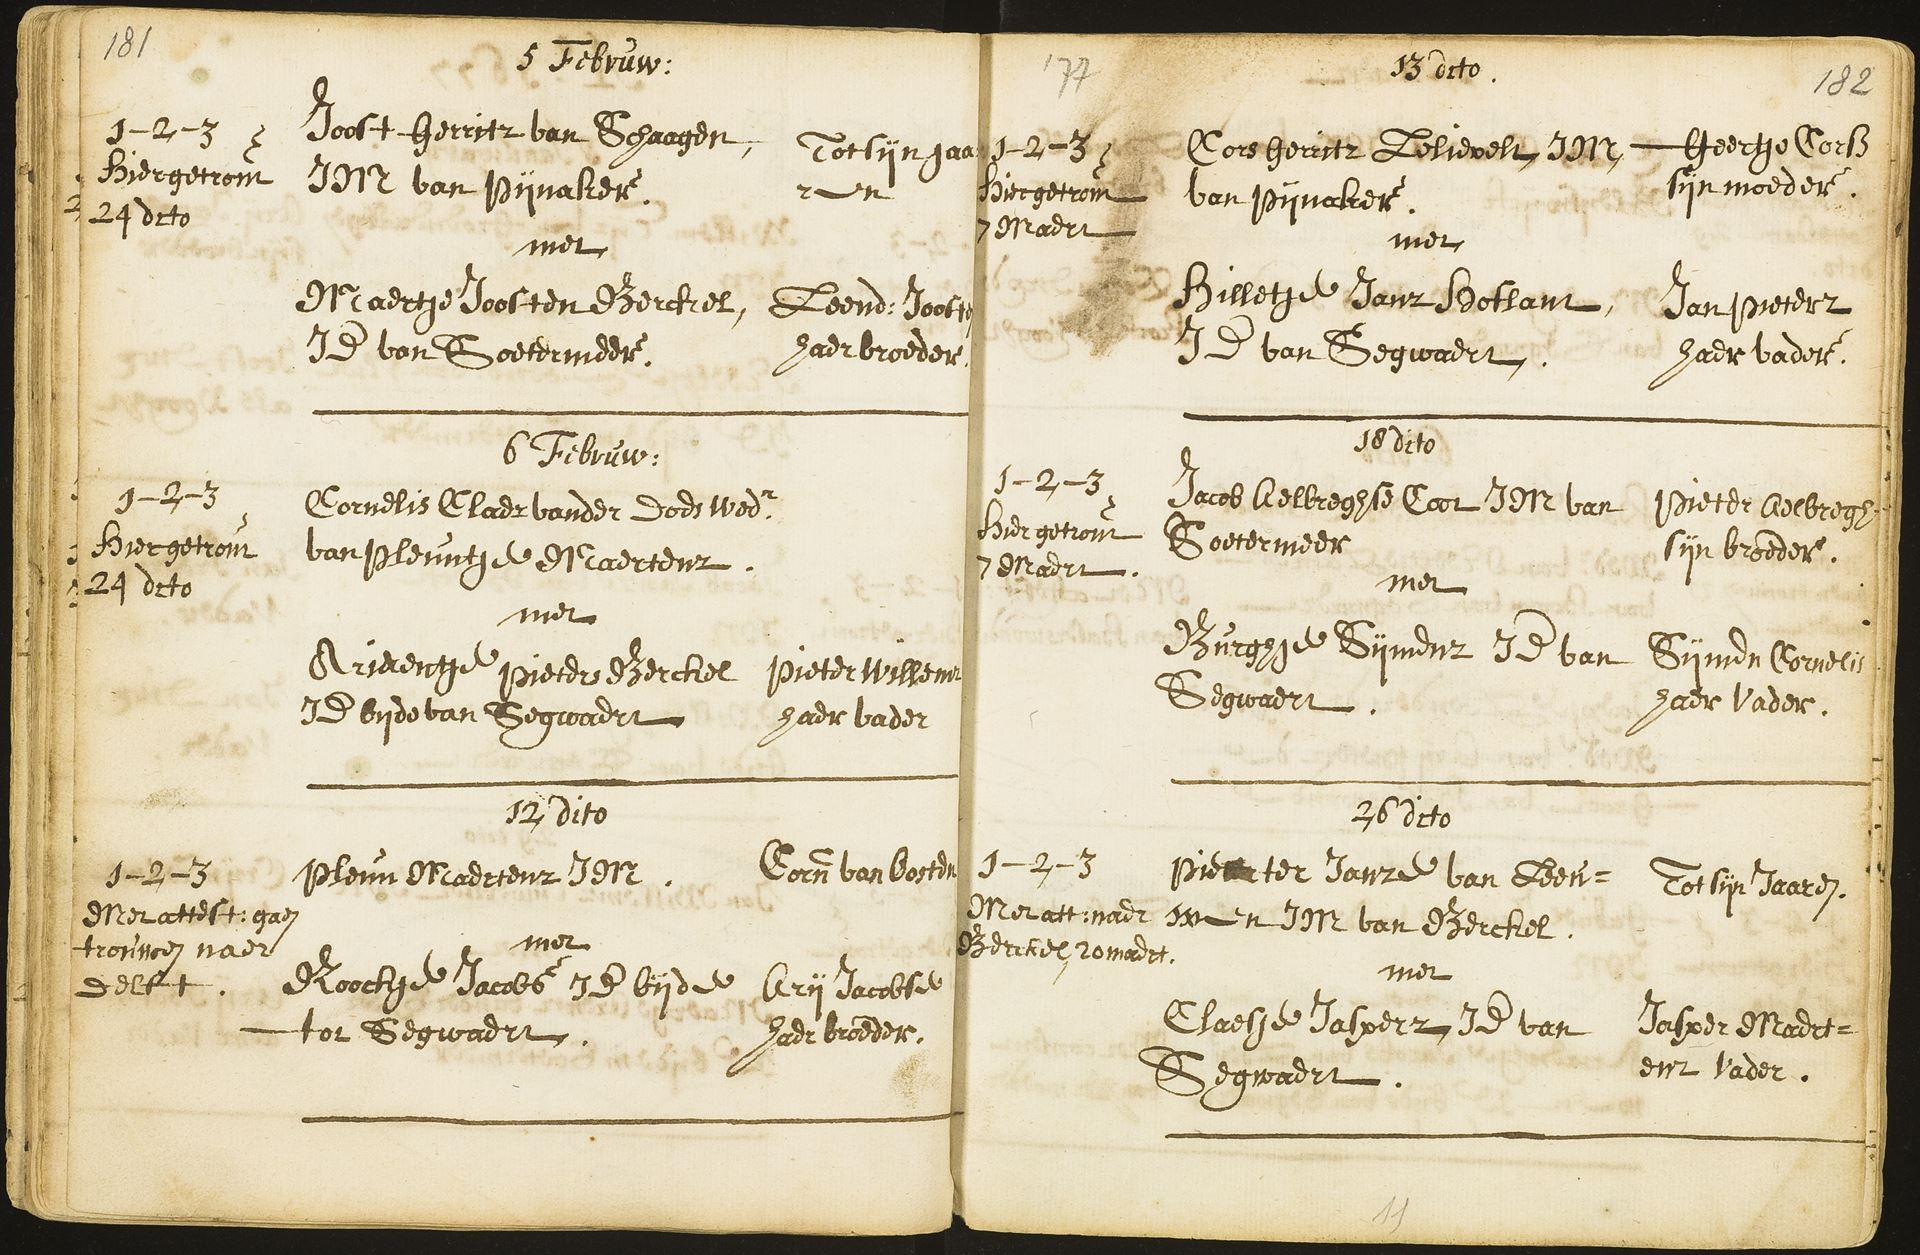 181
5 Februw:
1-2-3
Hier getrout
24 dito
Joost Gerritz van Schaagen,
JM van Pijnaker.
Tot sijn jaa
ren
met
Maertje Joosten Berckel,
JD van Soetermeer.
Leend: Jooste
haer broeder.
6 Februw:
1-2-3
Hier getrout
24 dito
Cornelis Claesz vander Does wedr.
van Pleuntje Maertenz.
met
Ariaentje Pieters Berckel
JD beyde van Segwaert
Pieter Willemz
haer vader
12 dito
1-2-3
Met attest: gaen
trouwen naer
Delft.
Pleun Maertenz JM.
Corn van Oosten
met
Roockje Jacobs JD beyde
tot Segwaert.
Arij Jacobse
haer broeder.
'77
182
13 dito.
1-2-3
Hier getrout
7 Maert
Cors Gerritz Lelievelt, JM,
van Pijnaker.
Geertje Cors
sijn moeder.
met
Hilletje Janz Hoflant,
JD van Segwaert.
Jan Pieterz
haer vader.
18 dito
1-2-3
Hier getrout
7 Maert.
Jacob Aelbreghse Coot JM van
Soetermeer
Pieter Aelbregh
sijn broeder.
met
Burghje Sijmenz JD van
Segwaert.
Sijmen Cornelis
haer vader.
26 dito
1-2-3
Met att: naer
Berckel, 20 maert.
Pieter Janze van Leeu=
wen JM van Berckel.
Tot sijn Jaaren.
met
Claesje Jasperz, JD van
Segwaert.
Jasper Maert=
enz vader.